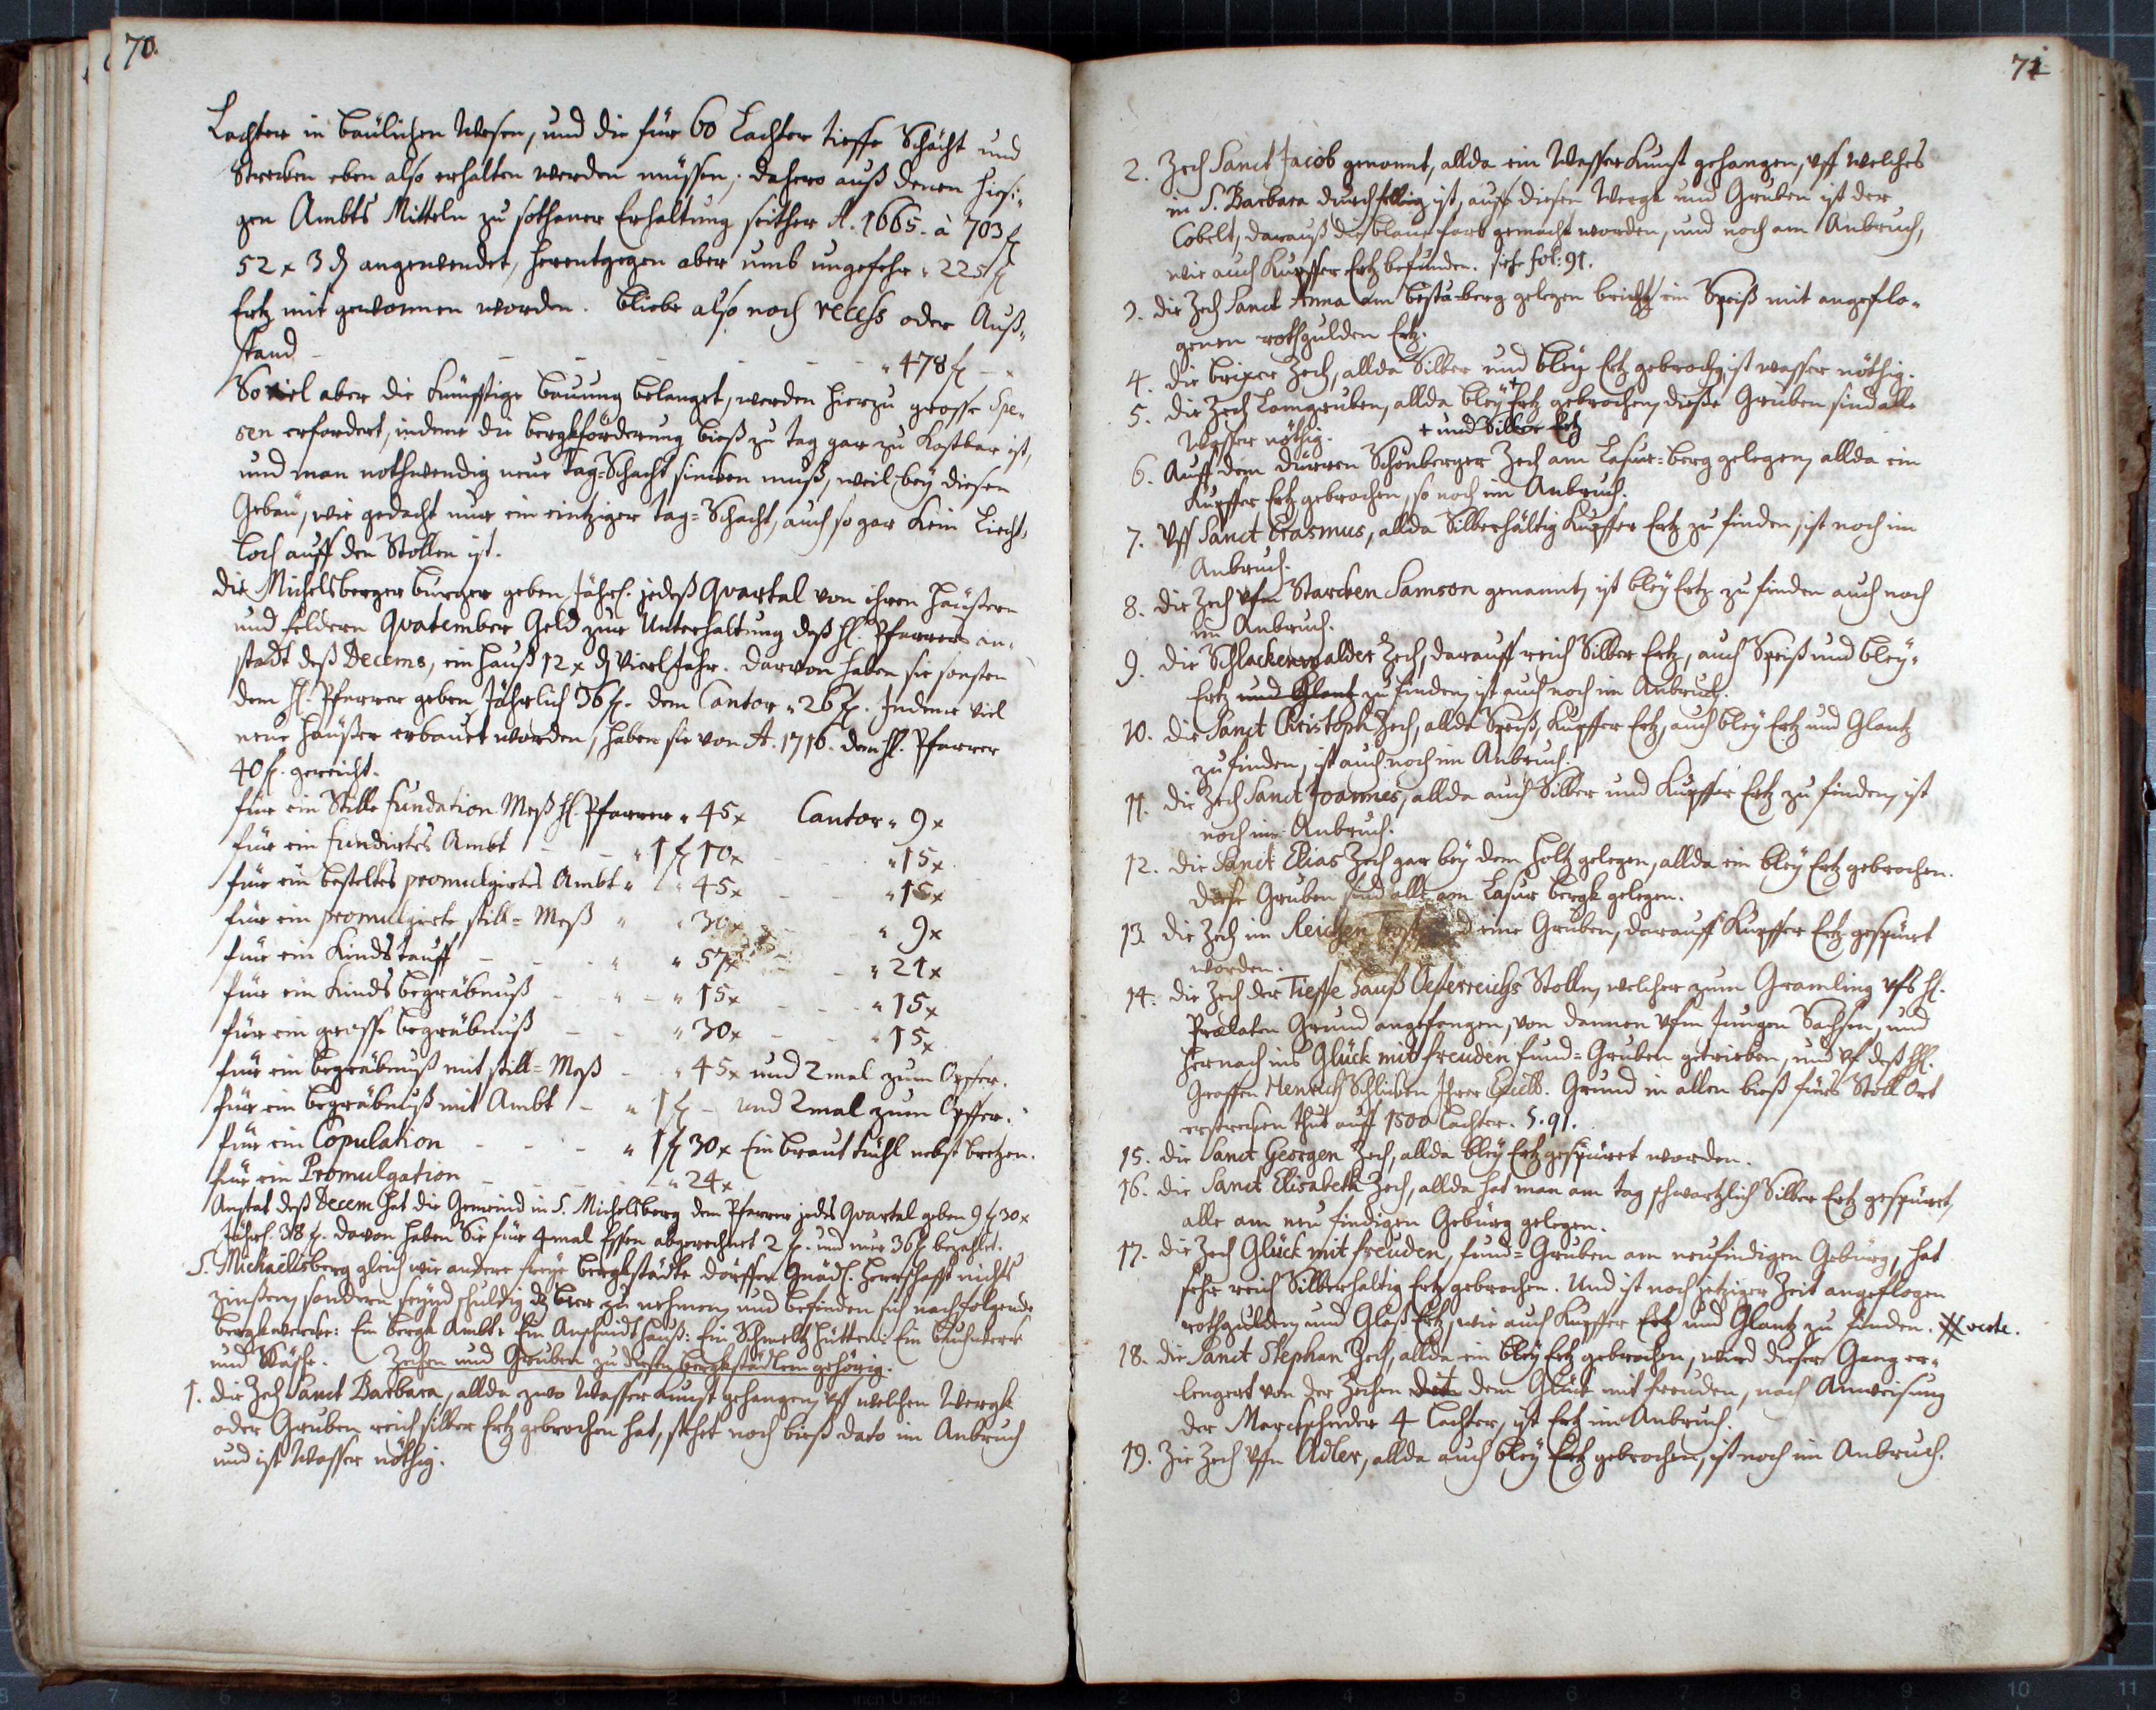 70.
Lachter in baulichen Wesen, und die für 60 Lachter tieffe Schächt und
Strecken eben also erhalten werden müssen; dahero auß denen hiesi:
gen Ambts Mitteln zu sothaner Erhaltung seither A. 1665. à 703 f
52 x 3 d angewendet, herentgegen aber umb ungefehr 225 f
Ertz mit gewonnen worden. Bliebe also noch recess oder Auß-
stand - - - - - - - 478 f - x
Soviel aber die künfftige bauung belanget, werden hierzu grosse Spe-
sen erfordert, indeme die bergkförderung bieß zu tag gar zu kostbar ist,
und man nothwendig neue tag-Schacht sincken muß, weil bey diesen
Gebäu, wie gedacht nur ein eintziger tag-Schacht, auch so gar kein Liecht-
loch auff den Stollen ist.
die Michelsberger burger geben Jährl. jedeß Quartal von ihren Häußern
und feldern Quatember Geld zur Unterhaltung deß H. Pfarrers an-
statt deß Decems, ein Hauß 12 x d Viertl Jahr. darvon haben sie sonsten
dem H. Pfarrer geben Jährlich 36 f. dem Cantor 26 f. Indeme viel
neue Häußer erbauet worden, haben sie von A. 1716. dem H. Pfarrer
40 f. gereicht.
für ein Stille fundation Meß H. Pfarrer 45 x Cantor 9 x
für ein fundirtes Ambt - - 1 f 10 x - - 15 x
für ein besteltes promulgirtes Ambt 45 x - - 15 x
für ein promulgirte still-Meß 30 x - - 9 x
für ein Kindstauff - - 57 x - - 21 x
für ein Kinds begräbnuß - - 15 x - - 15 x
für ein grosse begräbnuß - - 30 x - - 15 x
für ein begräbnuß mit still-Meß - 45 x und 2 mal zum Opfer.
für ein begräbnuß mit Ambt - 1 f - und 2 mal zum Opffer.
für ein Copulation - - - 1 f 30 x Ein braut tüchl nebst bretzen.
für ein Promulgation - - - 24 x
Anstat deß Decem hat die Gemeind in S. Michelsberg dem Pfarrer jedes Quartal geben 9 f 30 x
Jährl. 38 f. davon haben Sie für 4 mal Essen abgerechnet 2 f. und nur 36 f bezahlet.
S. Michaelsberg gleich wie andere freye bergkstädte dörffen Gnäd. Herrschafft nichts
zinßen, sondern seynd schuldig d bier zu nehmen, und befinden sich nachfolgende
bergkwercke: Ein bergk Ambt: Ein Anschnidt Hauß: Ein Schmeltz Hütten: Ein buchwerck
und Wäsche. Zechen und Gruben zu diesen bergkstädtlein gehörig.
1. die Zech Sanct Barbara, allda zwo Wasser Kunst gehangen, uff welchen Wergk
oder Gruben reich silber Ertz gebrochen hat, stehet noch bieß dato im Anbruch
und ist Wasser nöthig.
71
2. Zech Sanct Jacob genannt, allda ein Wasser Kunst gehangen, uff welches
in S. Barbara durchschlägig ist, auff diesen Wergk und Gruben ist der
Cobelt, darauß die blaue farb gemacht worden, und noch am Anbruch,
wie auch Kupffer Ertz befunden. siehe fol: 91.
3. die Zech Sanct Anna am gelegen bricht ein Speiß mit angeflo-
genen rothgulden Ertz.
4. die brixer Zech, allda Silber und bley Ertz gebrochen, ist wasser nöthig.
5. die Zech Lamgruben, allda bley + Ertz gebrochen, diese Gruben sind alle
Wasser nöthig. + und Silber Ertz
6. Auff dem dürren Schönberger Zech am Lasur-berg gelegen, allda ein
Kupffer Ertz gebrochen, so noch im Anbruch.
7. Uff Sanct Erasmus, allda Silberhältig Kupffer Ertz zu finden, ist noch im
Anbruch.
8. die Zech ufm Starcken Samson genannt, ist bley Ertz zu finden auch noch
im Anbruch.
9. die Schlackenwalder Zech, darauff reich Silber Ertz, auch Speiß und bley-
Ertz und Glantz zu finden, ist auch noch im Anbruch.
10. die Sanct Christoph Zech, allda Speiß, Kupffer Ertz, auch bley Ertz und Glantz
zu finden, ist auch noch im Anbruch.
11. die Zech Sanct Joannes, allda auch Silber und Kupffer Ertz zu finden, ist
noch im Anbruch.
12. die Sanct Elias Zech gar bey dem Holtz gelegen, allda ein bley Ertz gebrochen.
diese Gruben sind alle am Lasur bergk gelegen.
13. die Zech im Reichen Trost eine Gruben, darauff Kupffer Ertz gespürt
worden.
14. die Zech der Tieffe Hauß Oesterreichs Stolln, welcher zum Gramling ufs H.
Prælaten Grund angefangen, von dannen ufm Jungen Sachsen, und
hernach ins Glück mit freuden fund-Gruben getrieben, und uf deß H.
Graffen Henrich Schlicken Ihrer Excell. Grund in allen bieß fürs Stoll Ort
erstrecken thut auff 1500 Lachter. S. 91.
15. die Sanct Georgen Zech, allda bley Ertz gespüret worden.
16. die Sanct Elisabeth Zech, allda hat man am tag schwartzlich Silber Ertz gespüret,
alle am neu findigen Gebürg gelegen.
17. die Zech Glück mit freuden, fund-Gruben am neufindigen Gebürg, hat
sehr reich Silberhaltig Ertz gebrochen. Und ist noch jetziger Zeit angeflogen
rothgulden, und Glaß Ertz, wie auch Kupffer Ertz und Glantz zu finden. verte.
18. die Sanct Stephan Zech, allda ein bley Ertz gebrochen, wird dieser Gang er-
lengert von der Zechen dem Glück mit freuden, nach Anweisung
der Marckscheider 4 Lachter, ist Ertz im Anbruch.
19. Zie Zech ufm Adler, allda auch bley Ertz gebrochen, ist noch im Anbruch.